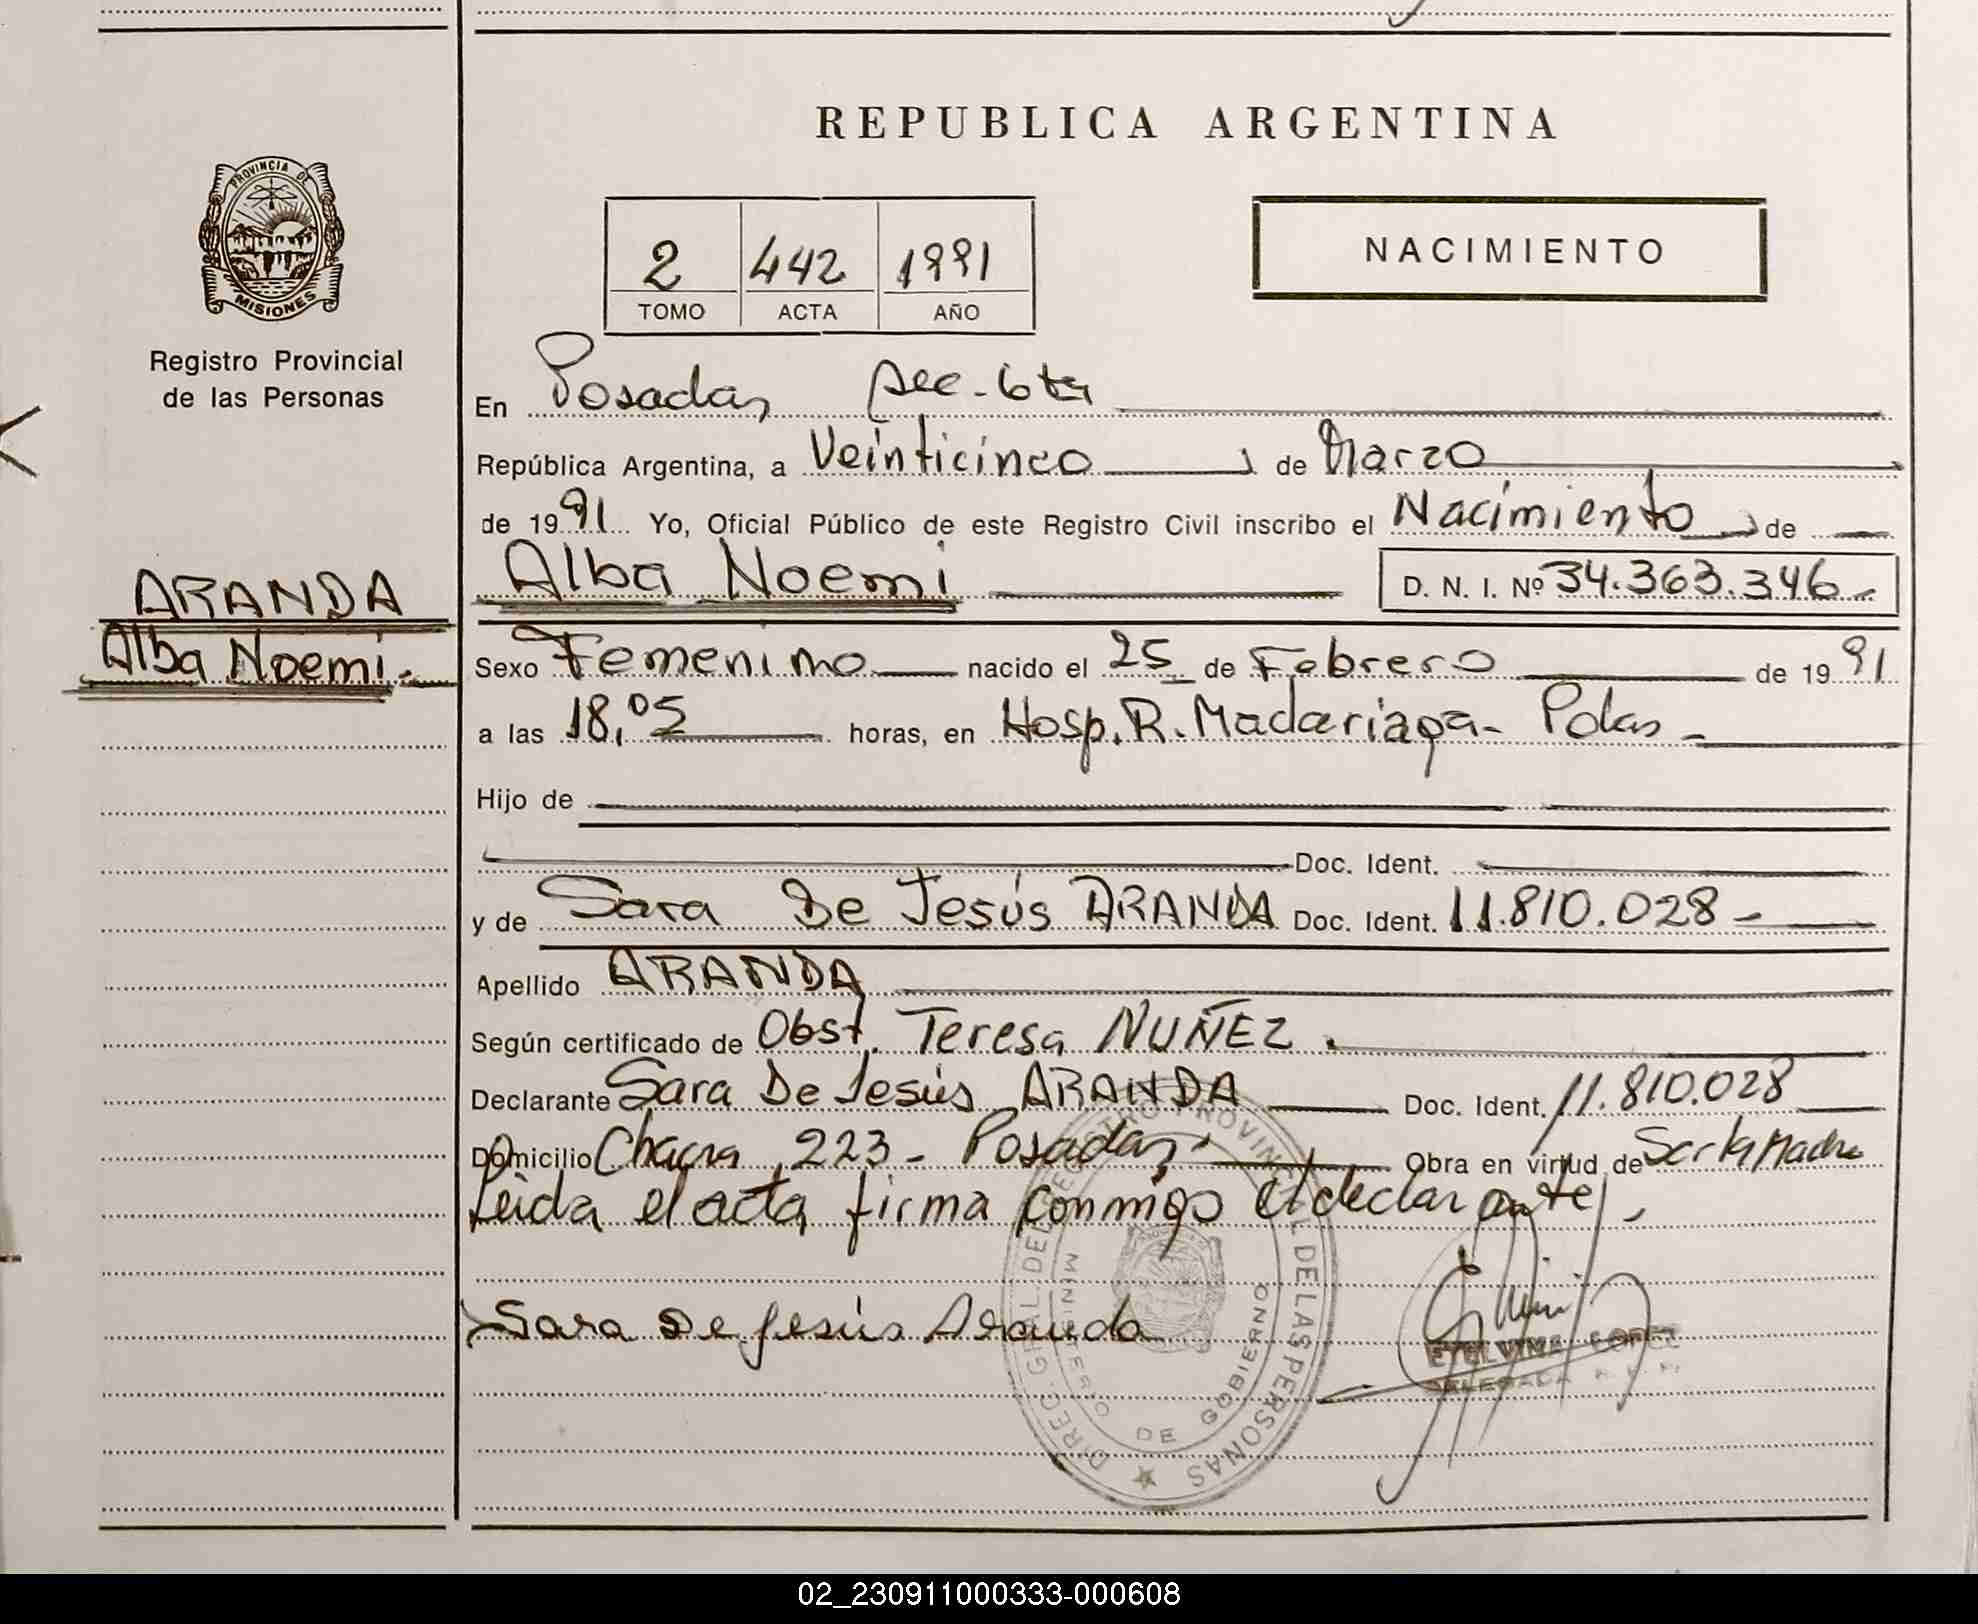 REPUBLICA ARGENTINA
PROVINCIA DE
MISIONES
Registro Provincial
de las Personas
2 442 1991
TOMO ACTA AÑO
NACIMIENTO
En Posadas Sec. 6ta
República Argentina, a Veinticinco de Marzo
de 1991 Yo, Oficial Público de este Registro Civil inscribo el Nacimiento de
ARANDA
Alba Noemi.
Alba Noemi D. N. I. Nº 34.363.346
Sexo Femenino nacido el 25 de Febrero de 1991
a las 18,05 horas, en Hosp. R. Madariaga - Pdas -
Hijo de
Doc. Ident.
y de Sara De Jesús ARANDA Doc. Ident. 11.810.028 -
Apellido ARANDA
Según certificado de Obst. Teresa NUÑEZ.
Declarante Sara De Jesús ARANDA Doc. Ident. 11.810.028
Domicilio Chacra 223 - Posadas. Obra en virtud de Ser la Madre
Leida el acta firma conmigo el declarante
Sara De Jesús Aranda
ETELVINA LOPEZ
DELEGADA R. P. P.
DIREC. GRAL. DEL REGISTRO PROVINCIAL DE LAS PERSONAS
MINISTERIO DE GOBIERNO
02_230911000333-000608